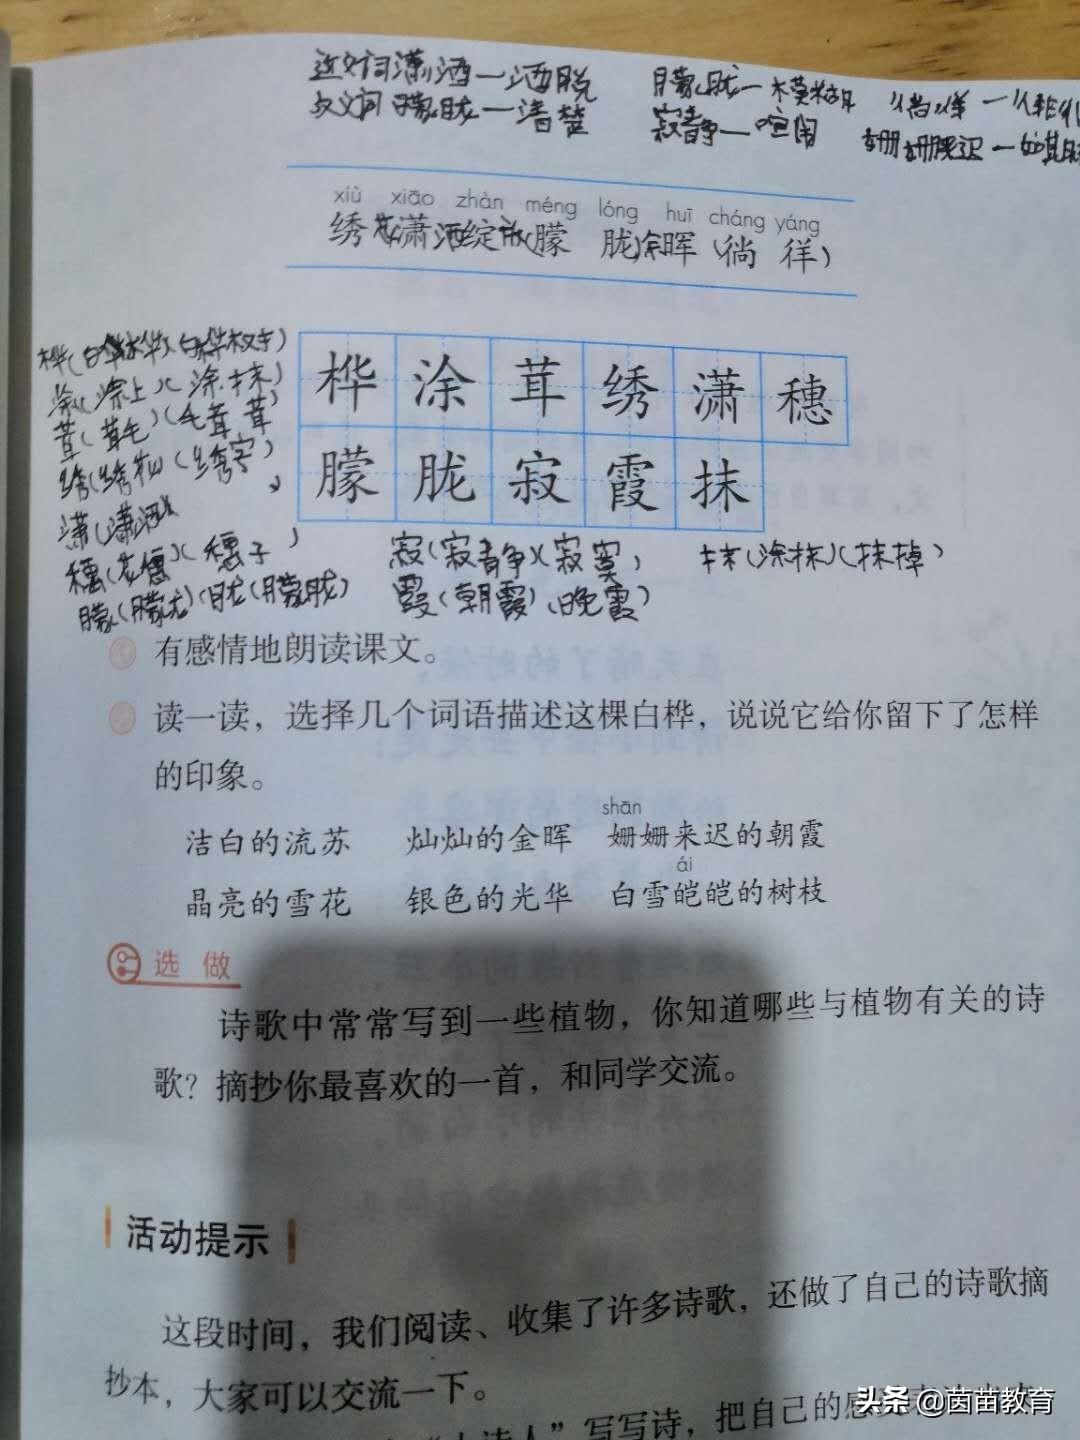 近义词潇洒一洒脱 朦胧一模糊 徜徉一
反义词朦胧一清楚 寂静一喧闹 姗姗来迟一如其
xiù xiāo zhàn méng lóng huī cháng yáng
绣花潇洒绽放(朦 胧)余晖(徜 徉)
桦(白桦林)(白桦树)
涂(涂上)(涂抹)
茸(茸毛)(毛茸茸)
绣(绣花)(绣字)
潇(潇洒)
穗(花穗)(穗子)
朦(朦胧)胧(朦胧)
桦 涂 茸 绣 潇 穗
朦 胧 寂 霞 抹
寂(寂静)(寂寞) 抹(涂抹)(抹掉)
霞(朝霞)(晚霞)
有感情地朗读课文。
读一读，选择几个词语描述这棵白桦，说说它给你留下了怎样
的印象。
shān
洁白的流苏 灿灿的金晖 姗姗来迟的朝霞
ái
晶亮的雪花 银色的光华 白雪皑皑的树枝
选做
诗歌中常常写到一些植物，你知道哪些与植物有关的诗
歌？摘抄你最喜欢的一首，和同学交流。
活动提示
这段时间，我们阅读、收集了许多诗歌，还做了自己的诗歌摘
抄本，大家可以交流一下。
诗人”写写诗，把自己的感
头条 @茵苗教育